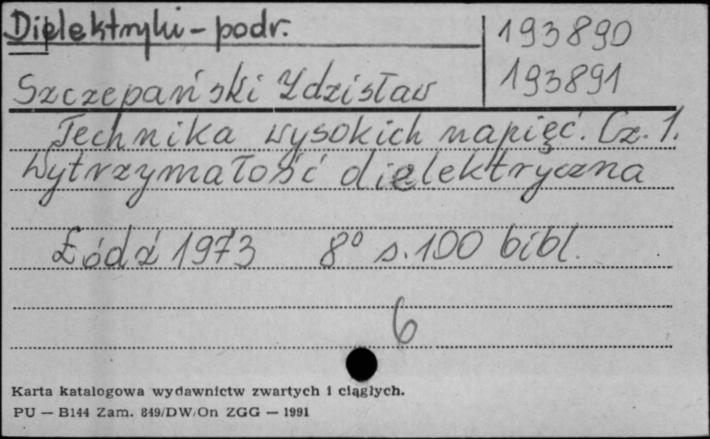 Dielektryki - podr.
193890
193891
Szczepański Zdzisław
Technika wysokich napięć. Cz. 1.
Wytrzymałość dielektryczna
Łódź 1973 8° s. 100 bibl.
6
Karta katalogowa wydawnictw zwartych i ciągłych.
PU — B144 Zam. 849/DW/On ZGG — 1991